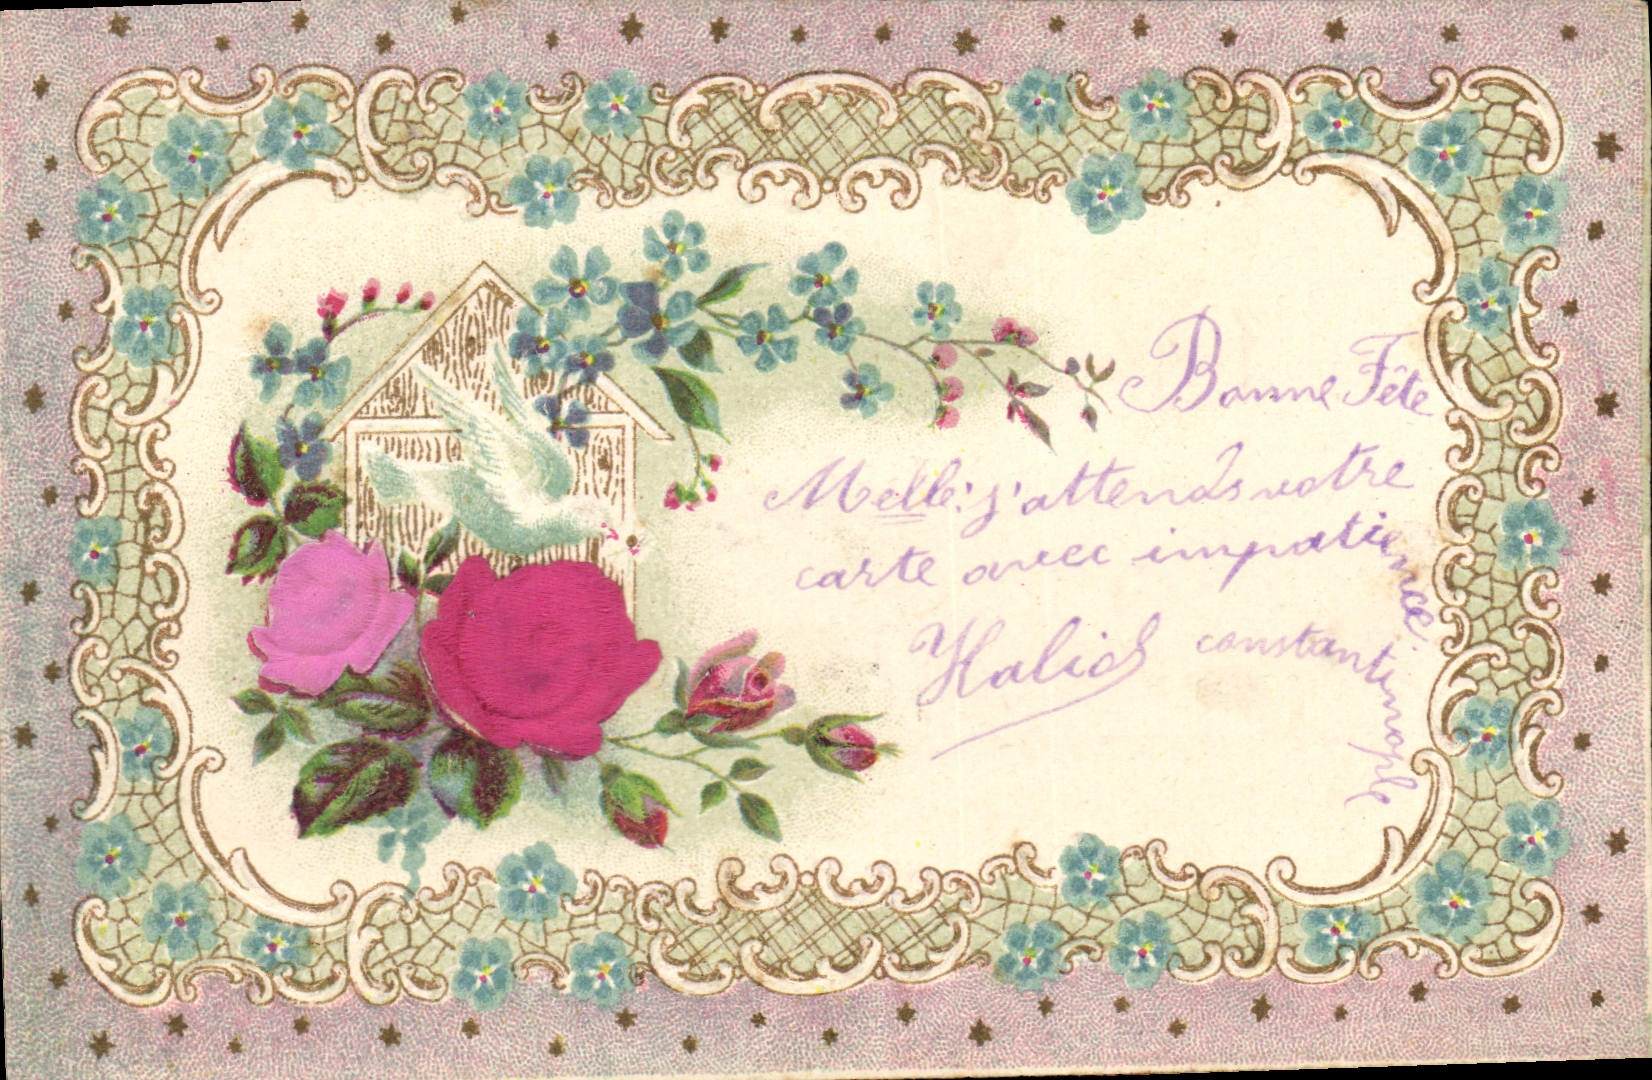 Bonne Fête
Melle: j'attends votre
carte avec impatience
Halid constantinople